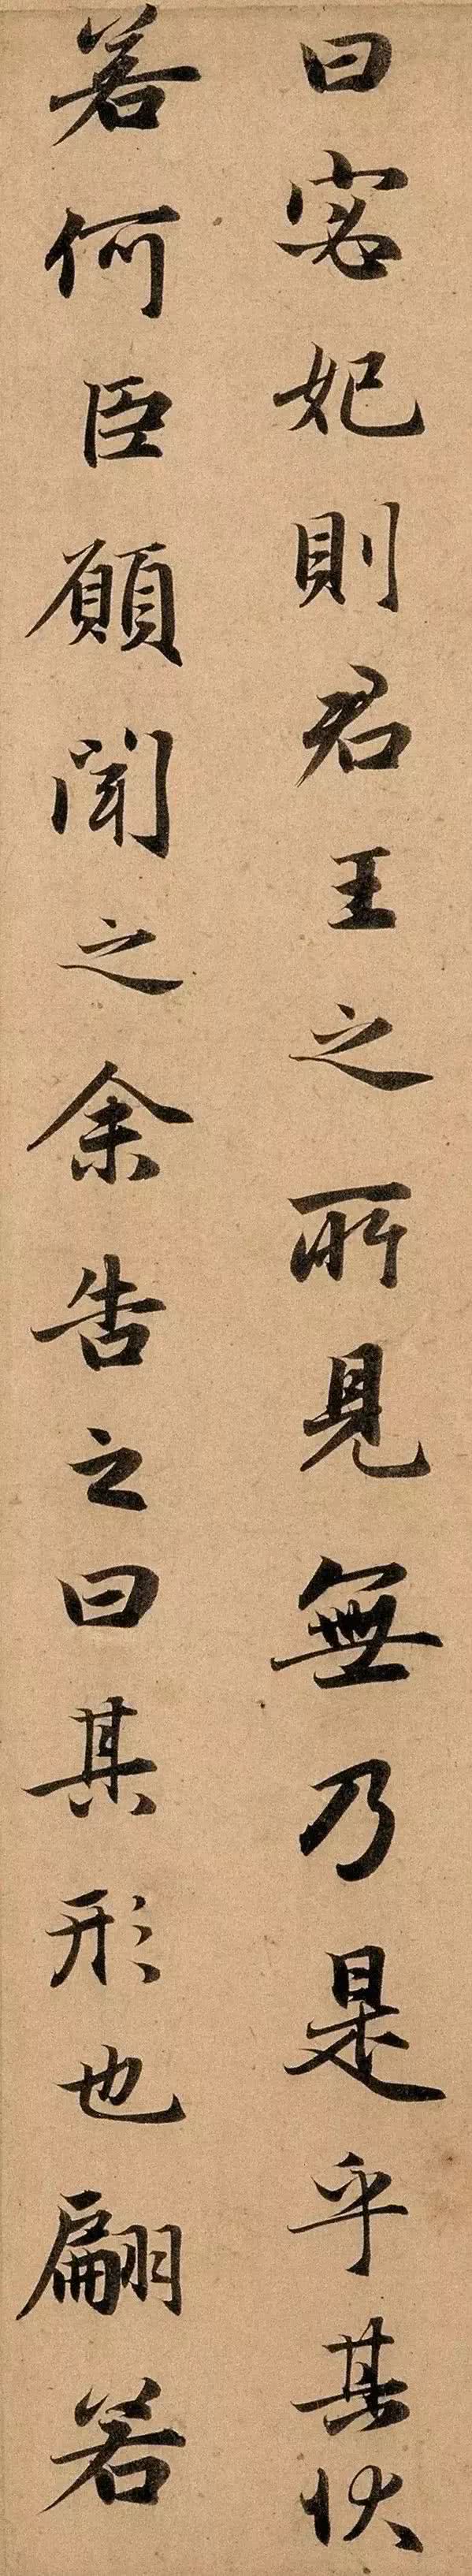 曰宓妃則君王之所見無乃是乎其狀
若何臣願聞之余告之曰其形也翩若